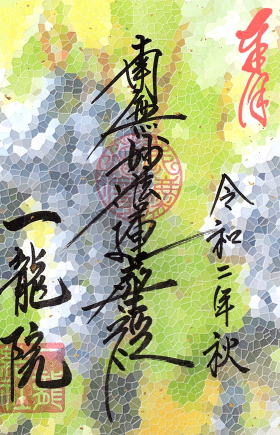 奉拝
令和二年秋
南無妙法蓮華経
一龍院